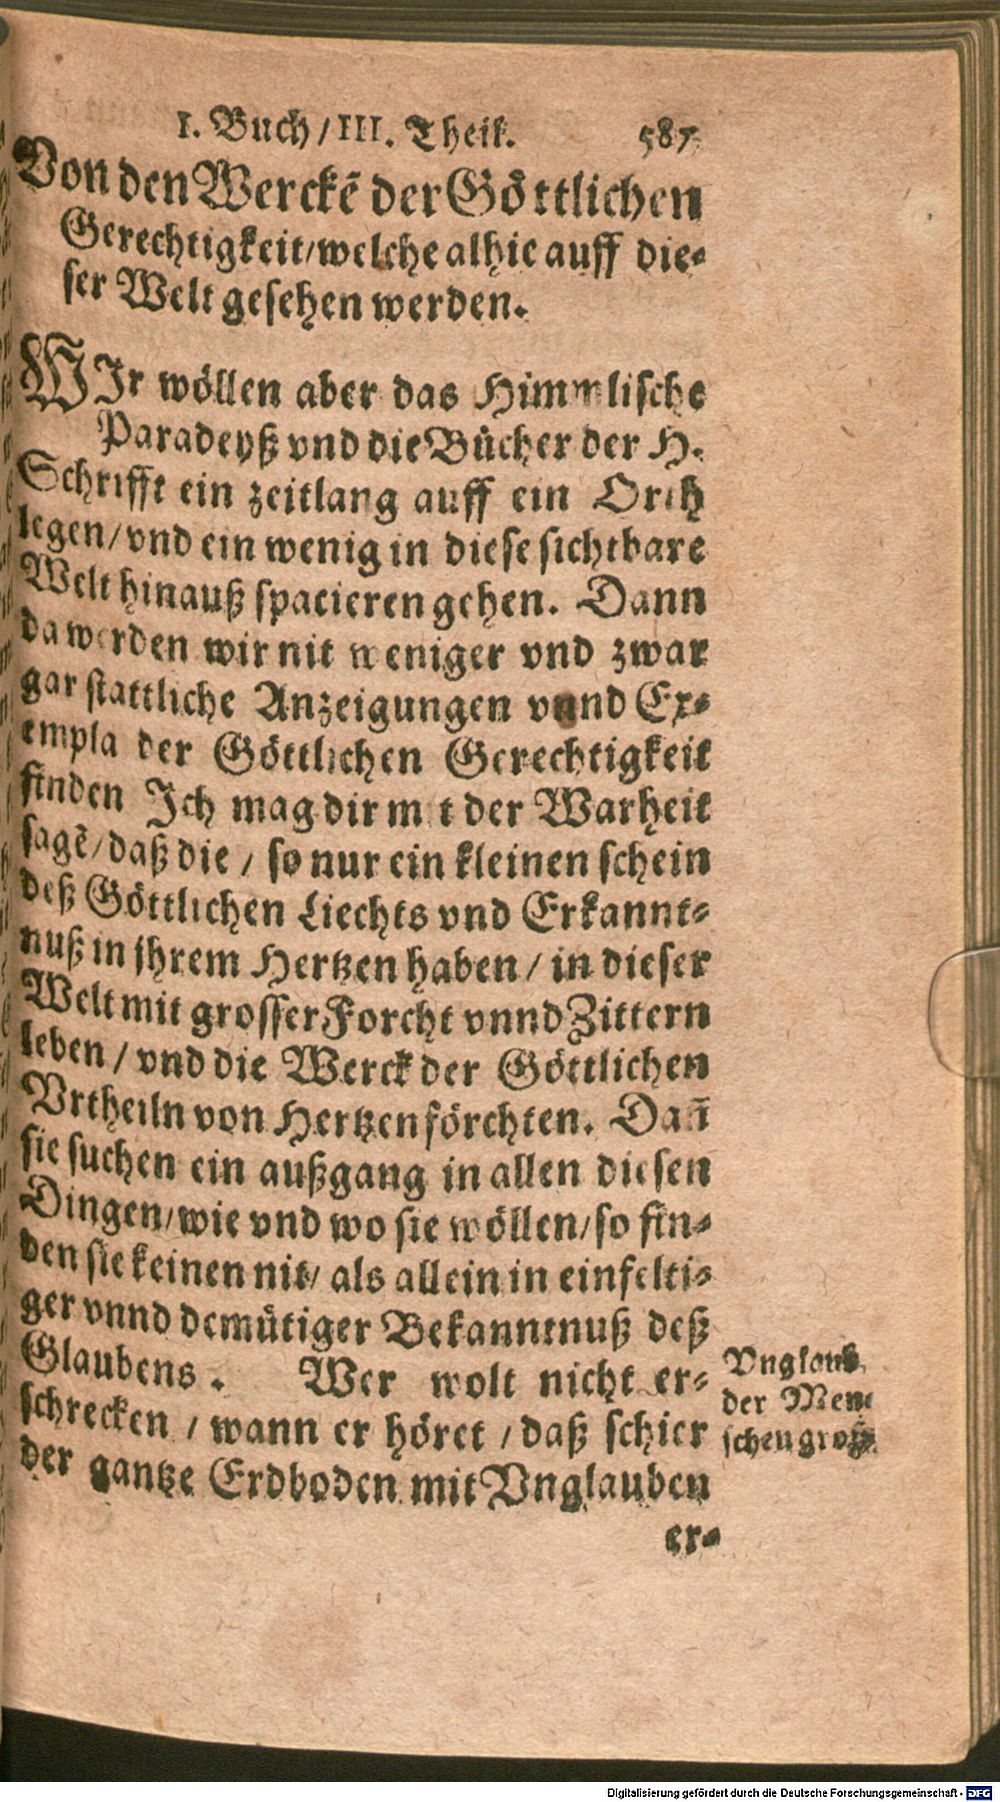 I. Buch / III. Theil. 587.
Von den Werckẽ der Göttlichen
Gerechtigkeit / welche alhie auff die-
ser Welt gesehen werden.
WIr wöllen aber das Himmlische
Paradeyß vnd die Bücher der H.
Schrifft ein zeitlang auff ein Orth
legen / vnd ein wenig in diese sichtbare
Welt hinauß spacieren gehen. Dann
da werden wir nit weniger vnd zwar
gar stattliche Anzeigungen vnnd Ex-
empla der Göttlichen Gerechtigkeit
finden Ich mag dir mit der Warheit
sagẽ / daß die / so nur ein kleinen schein
deß Göttlichen Liechts vnd Erkannt-
nuß in jhrem Hertzen haben / in dieser
Welt mit grosser Forcht vnnd Zittern
leben / vnd die Werck der Göttlichen
Vrtheiln von Hertzen förchten. Dañ
sie suchen ein außgang in allen diesen
Dingen / wie vnd wo sie wöllen / so fin-
den sie keinen nit / als allein in einfelti-
ger vnnd demütiger Bekanntnuß deß
Glaubens. Wer wolt nicht er-
schrecken / wann er höret / daß schier
der gantze Erdboden mit Vnglauben
er-
Vnglaub
der Men-
schen groß.
Digitalisierung gefördert durch die Deutsche Forschungsgemeinschaft - DFG